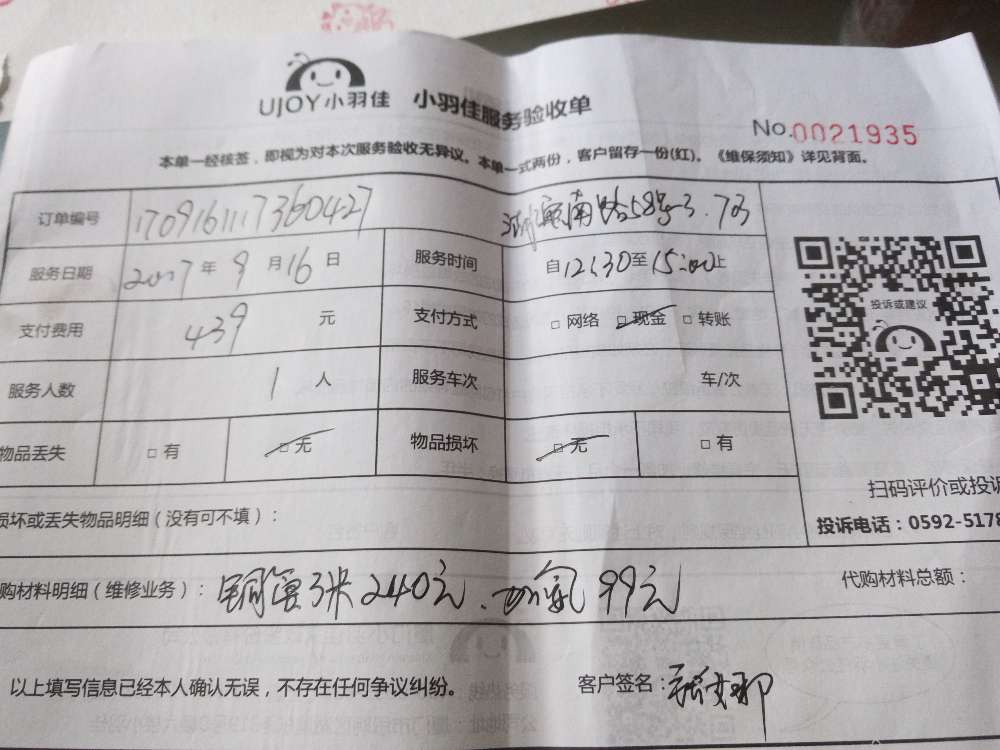 UJOY小羽佳 小羽佳服务验收单
No.0021935
本单一经核签，即视为对本次服务验收无异议。本单一式两份，客户留存一份(红)。《维保须知》详见背面。
订单编号 1709161117360427 南路58号3.703
服务日期 2017年9月16日 服务时间 自12:30至15:00止
支付费用 439 元 支付方式 □网络 □现金 □转账
服务人数 1人 服务车次 车/次
物品丢失 □有 □无 物品损坏 □无 □有
投诉或建议
扫码评价或投诉
投诉电话：0592-5178
损坏或丢失物品明细（没有可不填）：
购材料明细（维修业务）：铜管3米240元、加氟99元 代购材料总额：
以上填写信息已经本人确认无误，不存在任何争议纠纷。 客户签名：